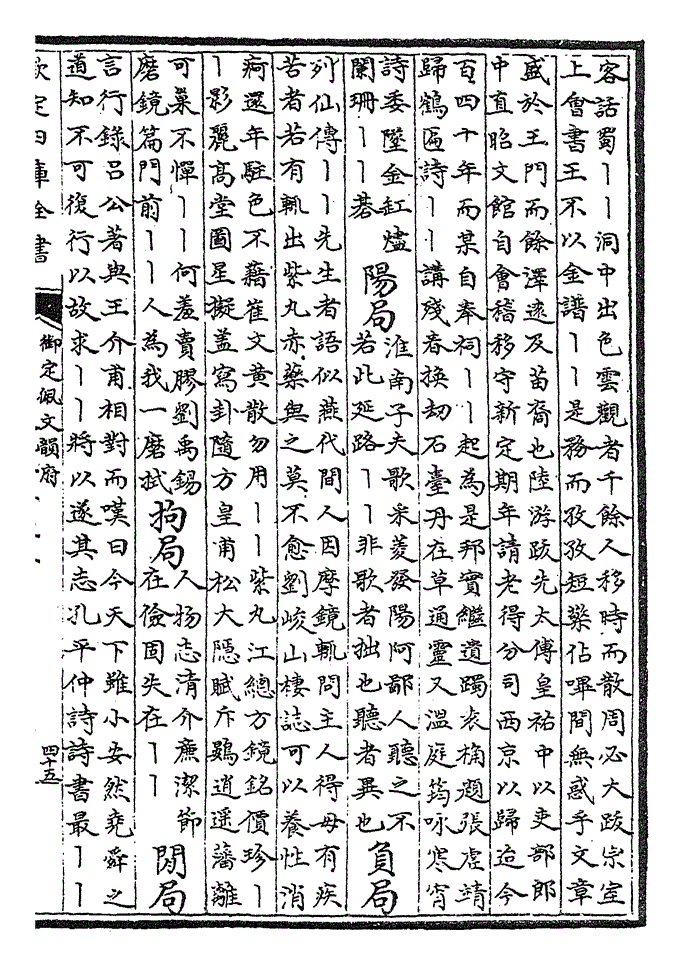 客話蜀丨丨洞中出色雲觀者千餘人移時而散周必大跋宗室
上會書王不以金譜丨丨是務而孜孜短檠佔嗶間無惑乎文章
盛於王門而餘澤遠及苗裔也陸游跋先太傅皇祐中以吏部郎
中直昭文館自會稽移守新定期年請老得分司西京以歸迨今
百四十年而某自奉祠丨丨起為是邦實繼遺躅袁桷題張虛靖
歸鶴匾詩丨丨講殘春換劫石臺丹在草通靈又溫庭筠咏寒宵
詩委墜金缸燼
闌珊丨丨棊
陽局
淮南子夫歌采菱發陽阿鄙人聽之不
若此延路丨丨非歌者拙也聽者異也
負局
列仙傳丨丨先生者語似燕代間人因摩鏡輒問主人得毋有疾
苦者若有輒出紫丸赤藥與之莫不愈劉峻山棲誌可以養性消
痾還年駐色不藉崔文黄散勿用丨丨紫丸江總方鏡銘價珍丨
丨影麗高堂圖星擬蓋寫卦隨方皇甫松大隱賦斥鷃逍遙藩離
可巢不憚丨丨何羞賣膠劉禹錫
磨鏡篇門前丨丨人為我一磨拭
拘局
人物志清介廉潔節
在儉固失在丨丨
閉局
言行錄吕公著與王介甫相對而嘆曰今天下雖小安然堯舜之
道知不可復行以故求丨丨將以遂其志孔平仲詩詩書最丨丨
欽定四庫全書
御定佩文韻府
四十五